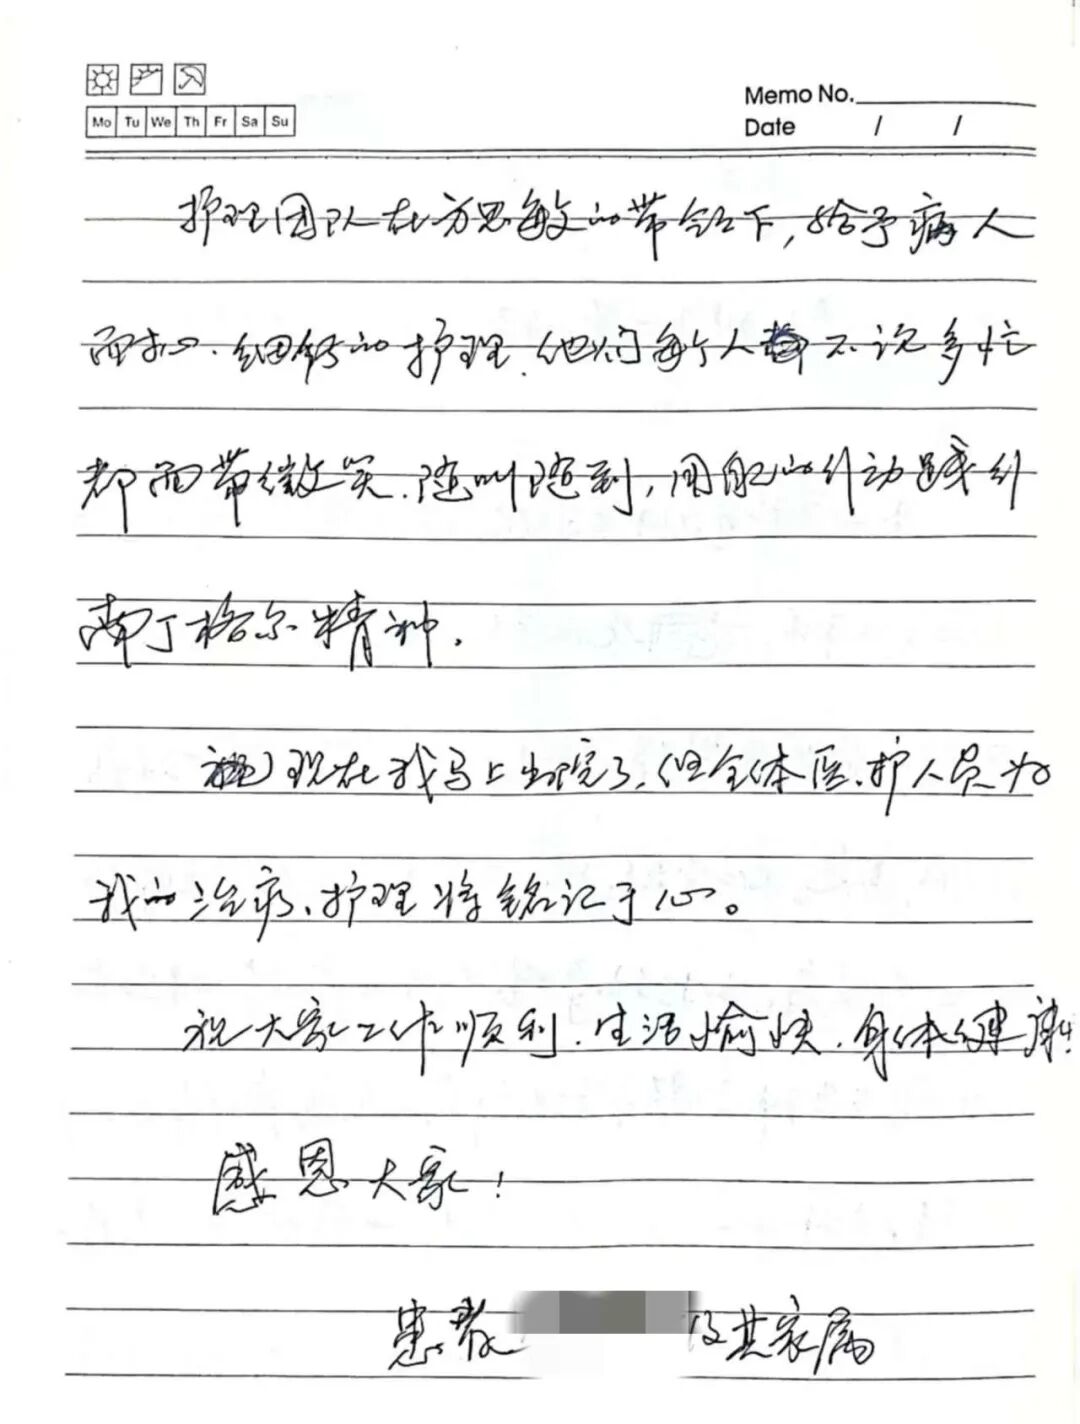 Mo Tu We Th Fr Sa Su
Memo No.
Date / /
护理团队在方思敏的带领下，给予病人
而心、细的护理．他们每个人不论多忙
都面带微笑、随叫随到，用自己的行动践行
南丁格尔精神．
现在我马上出院了，但全体医、护人员为
我的治疗、护理将铭记于心。
祝大家工作顺利．生活愉快．身体健康！
感恩大家！
患者 及其家属